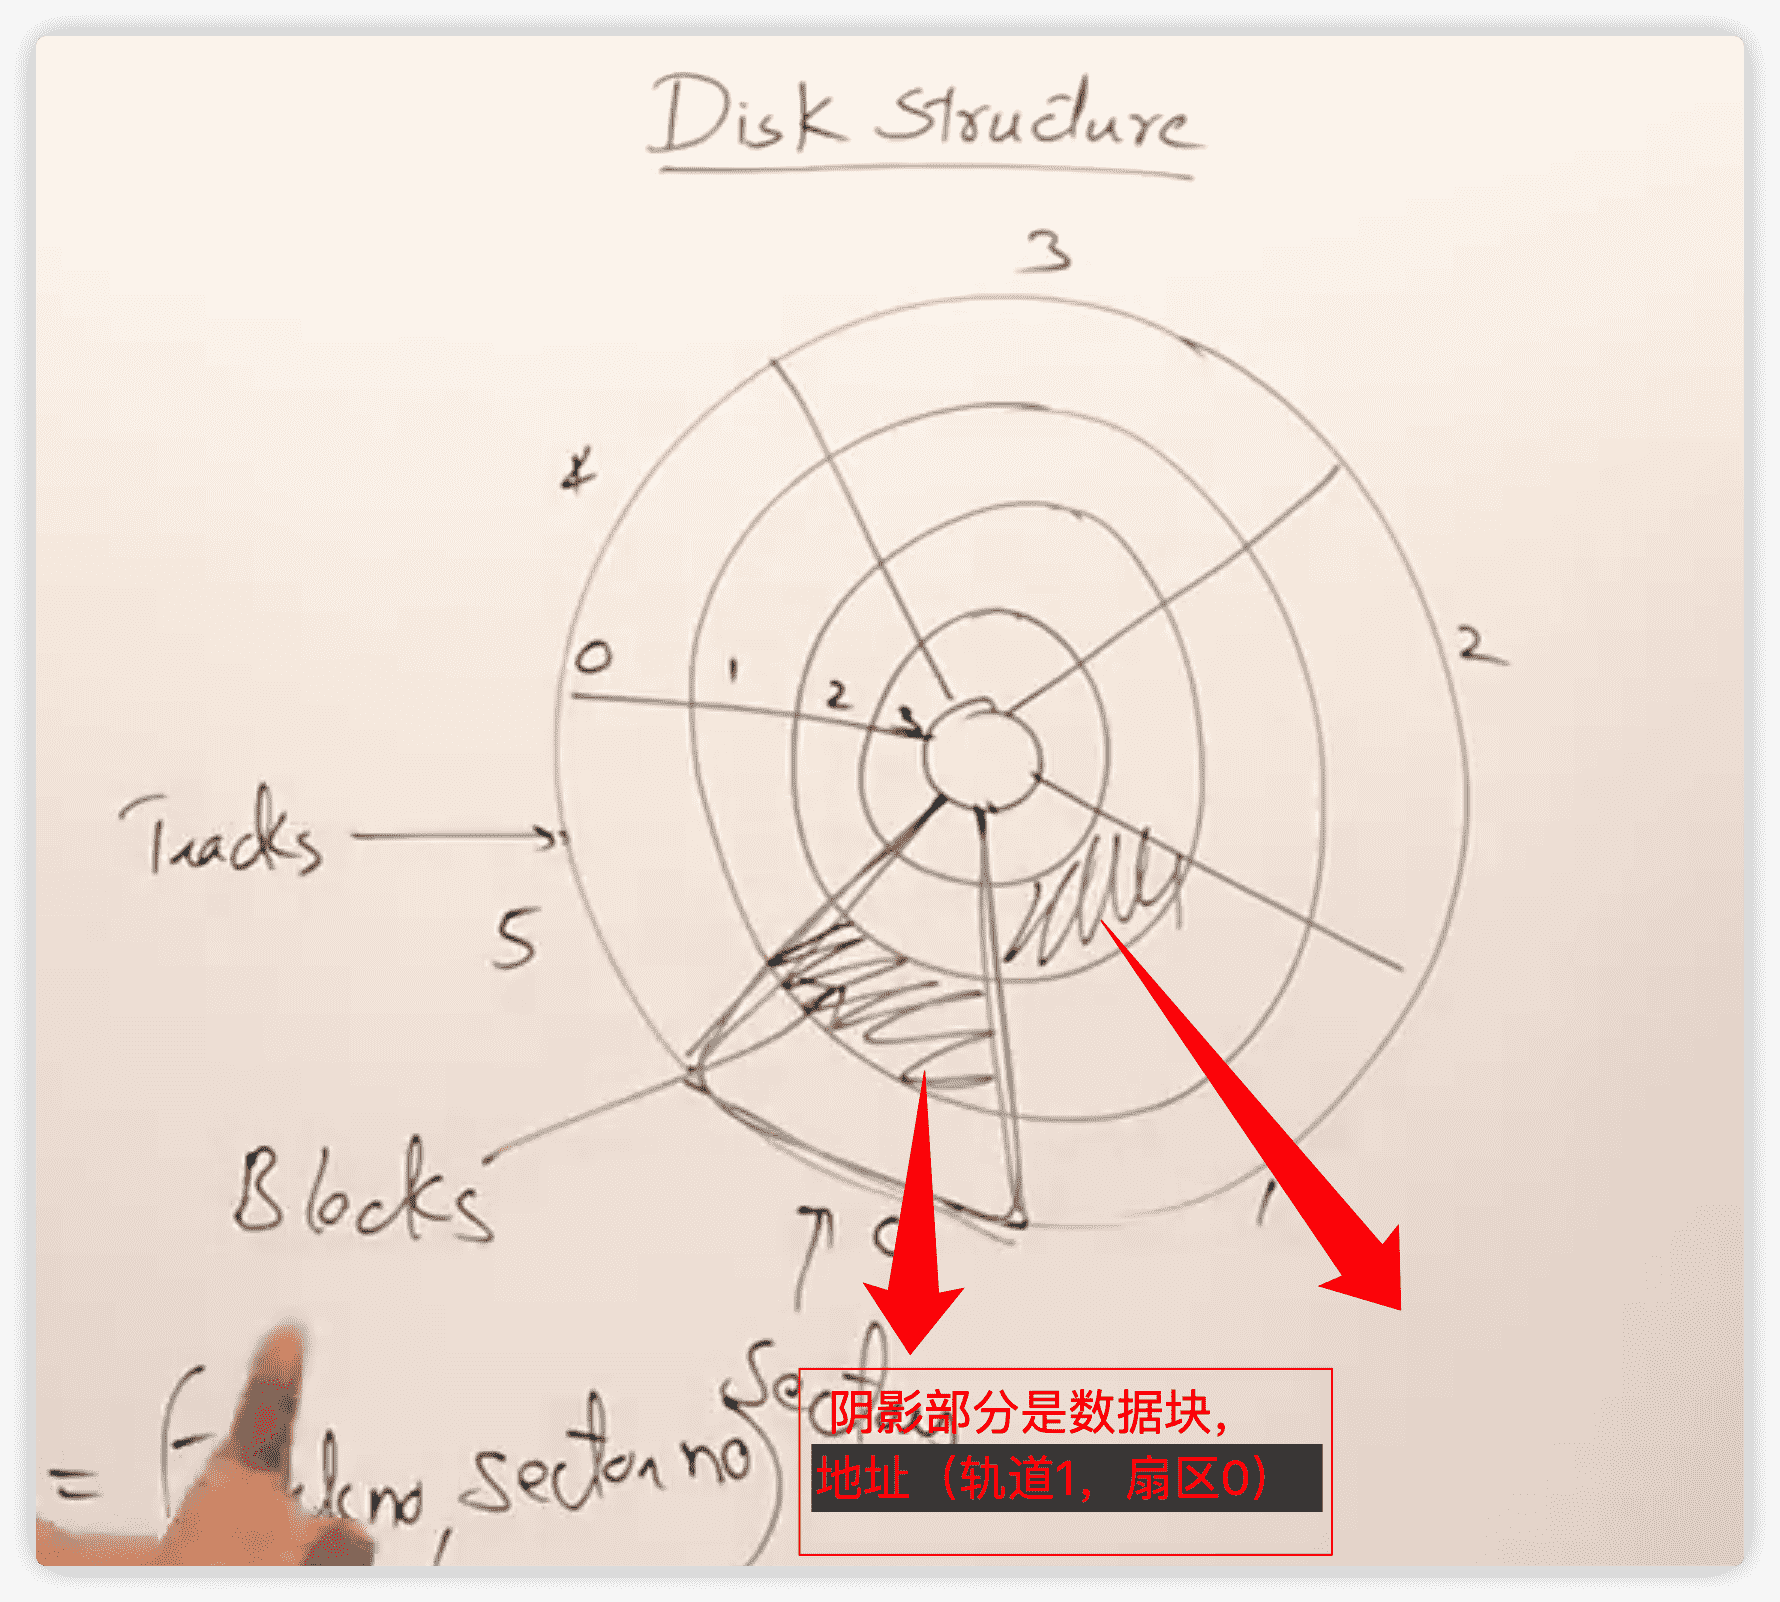 Disk Structure
3
4
2
0
1
2
Tracks
5
Blocks
1
0
Sectors
= (no, sector no)
阴影部分是数据块，
地址（轨道1，扇区0）